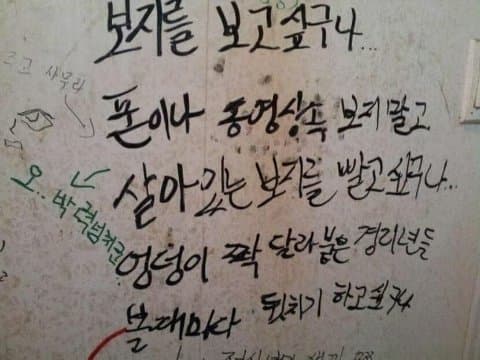 보지를 보고싶구나...
그 사무리
폰이나 동영상속 보지말고
오.. 박력넘쳐군
살아있는 보지를 빨고싶구나...
엉덩이 짝 달라붙은 경리년들
볼때마다 뒷치기 하고싶구나